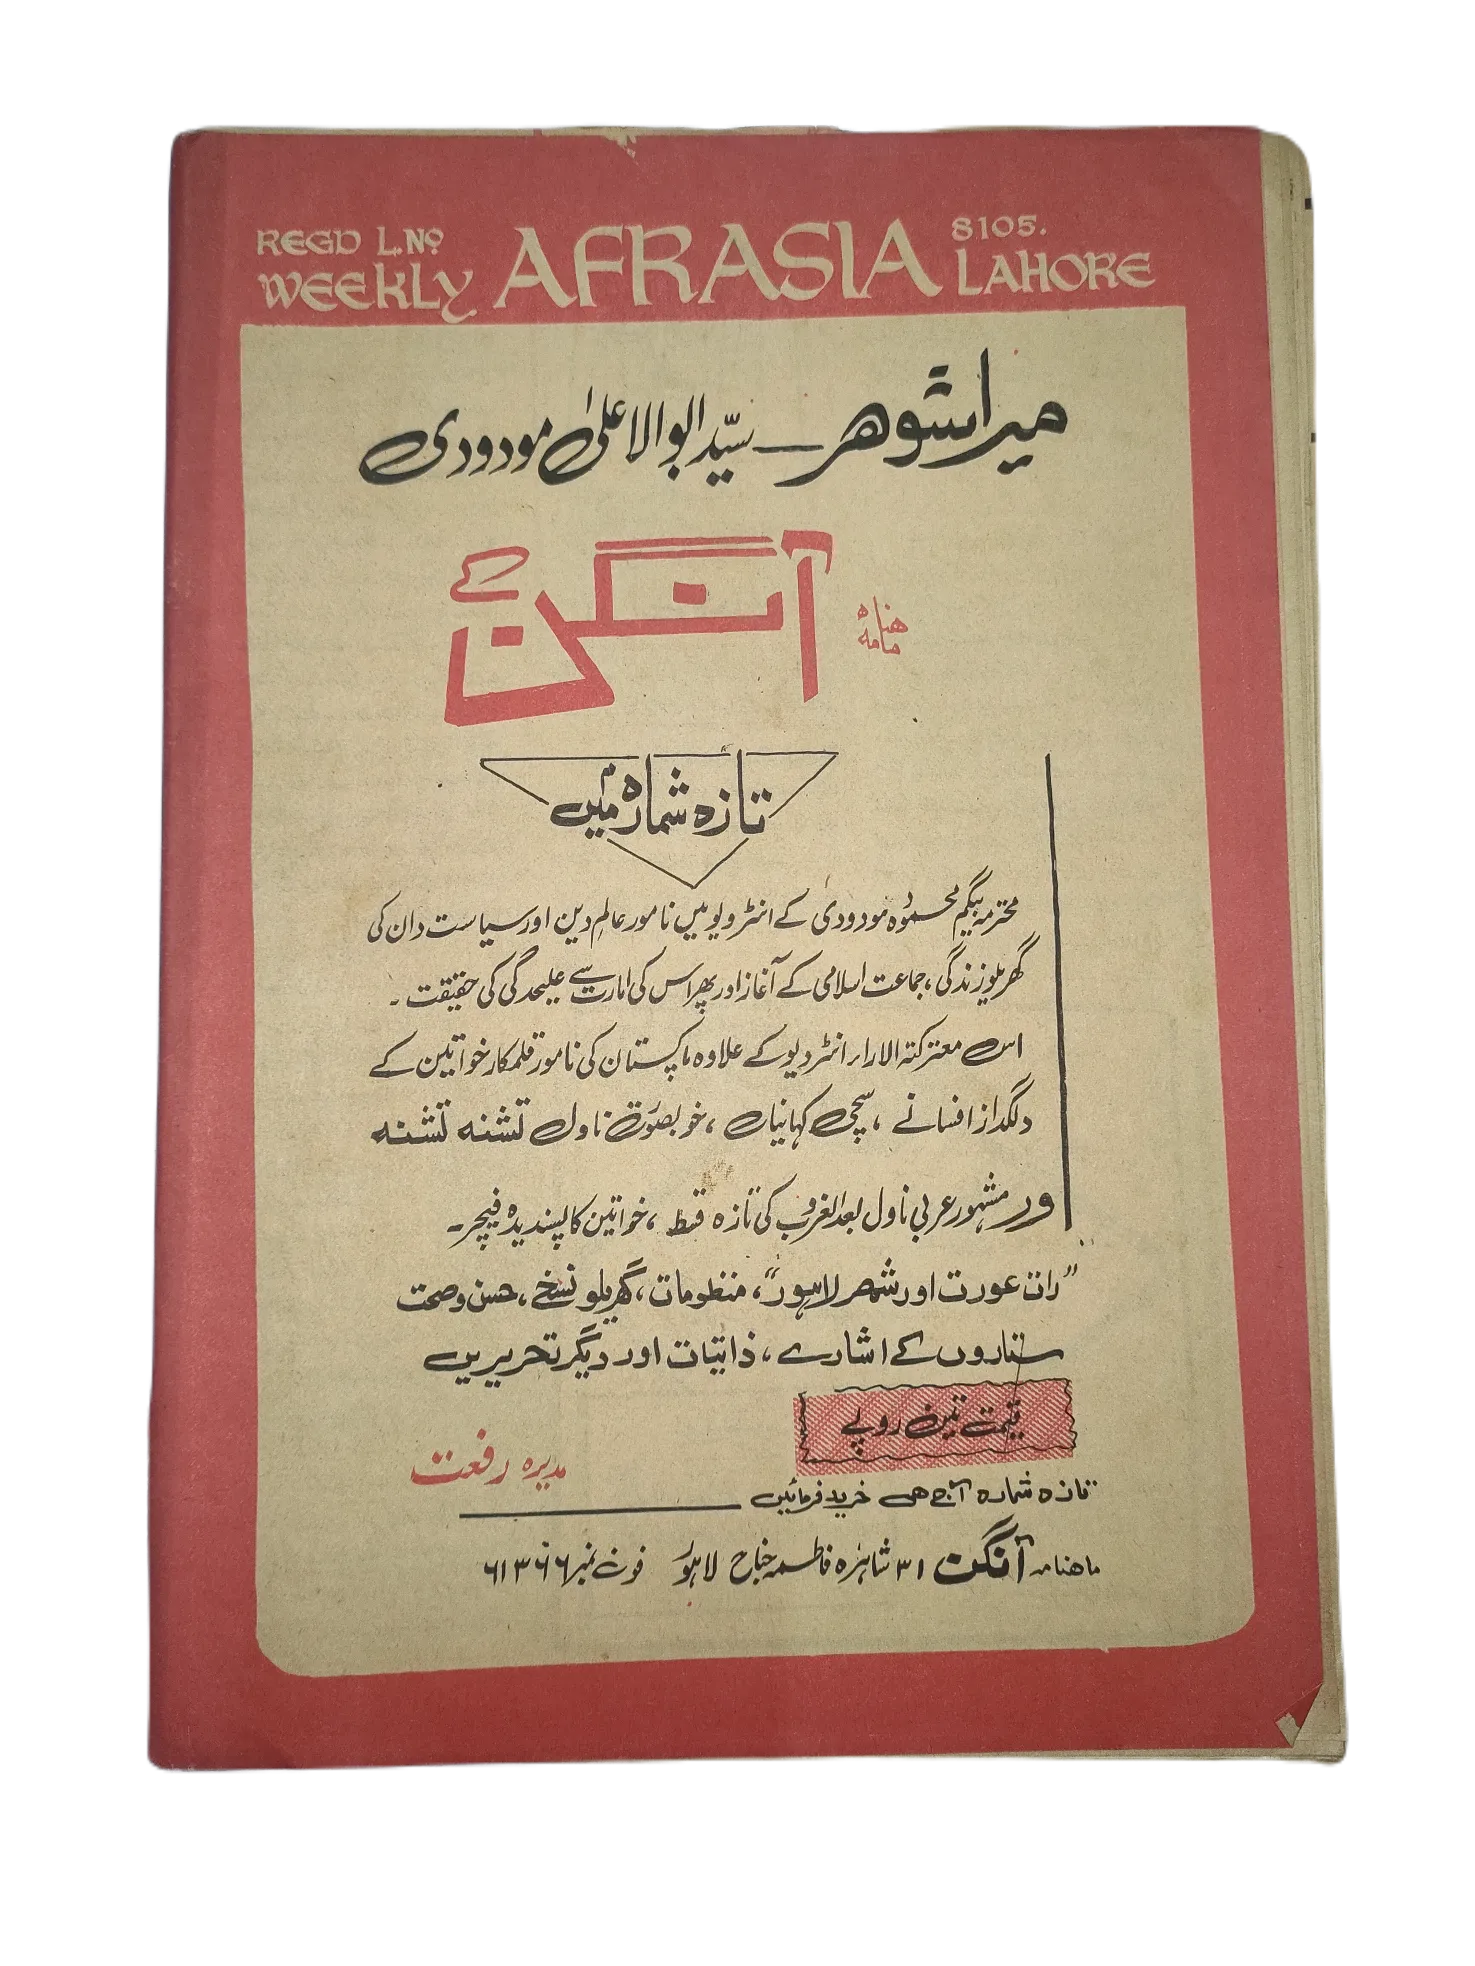 REGD L.No 8105.
WEEKLY AFRASIA LAHORE
میرا شوہر — سیّد ابوالاعلیٰ مودودی
ماہنامہ آنگن کے
تازہ شمارہ میں
محترمہ بیگم محمودہ مودودی کے انٹرویو میں نامور عالم دین اور سیاست دان کی
گھریلو زندگی، جماعت اسلامی کے آغاز اور پھر اس کی امارت سے علیحدگی کی حقیقت ۔
اس معترکتہ الارا انٹرویو کے علاوہ پاکستان کی نامور قلمکار خواتین کے
دلگداز افسانے ، سچی کہانیاں ، خوبصورت ناول تشنہ تشنہ
ور مشہور عربی ناول بعد الغروب کی تازہ قسط ، خواتین کا پسندیدہ فیچر ۔
"رات عورت اور شہر لاہور"، منظومات، گھریلو نسخے ، حسن و صحت
ستاروں کے اشارے ، ذاتیات اور دیگر تحریریں
قیمت تین روپے
مدیرہ رفعت
تازہ شمارہ آج ہی خرید فرمائیں
ماہنامہ آنگن ۳۱ شاہراہ فاطمہ جناح لاہور فون نمبر